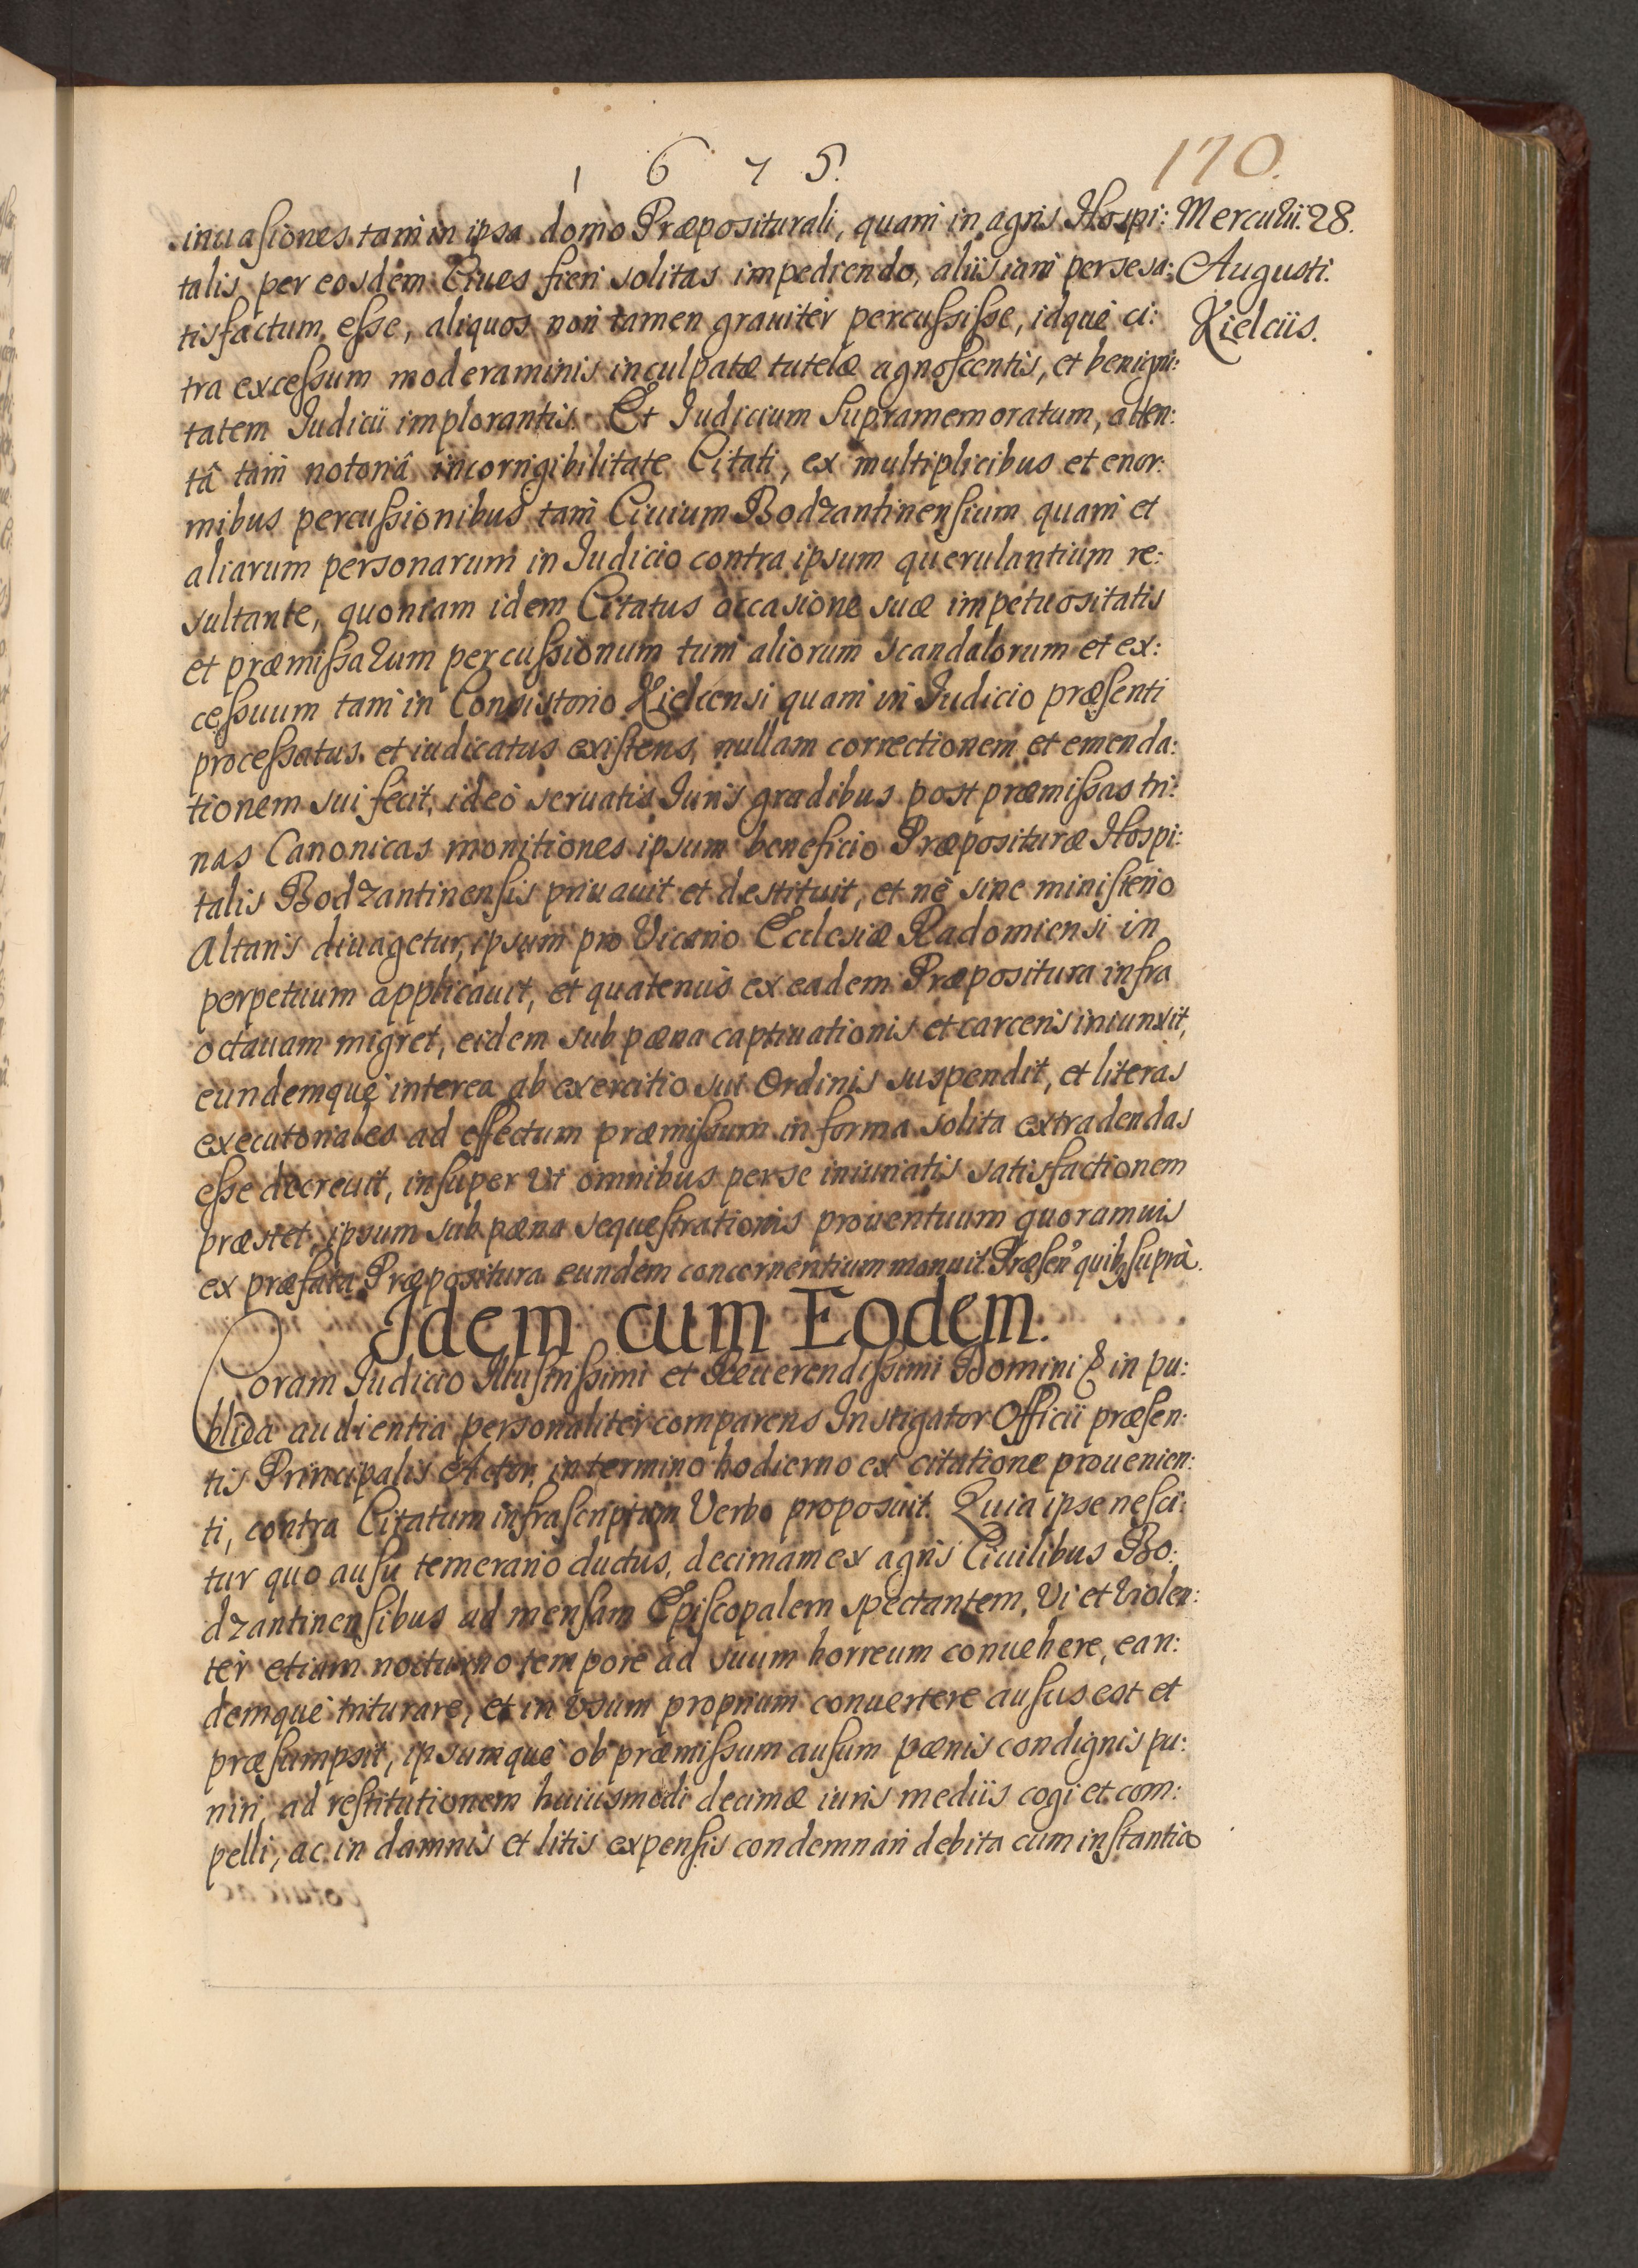 1675.
170.
inuasiones tam in ipsa domo Præpositurali, quam in agris Hospi:
Mercurii. 28.
talis per eosdem Ciues fieri solitas impediendo, aliis iam per se sa:
Augusti.
tisfactum esse, aliquos non tamen grauiter percussisse, idque ci:
Kielciis.
tra excessum moderaminis inculpatæ tutelæ agnoscentis, et benigni:
tatem Iudicii implorantis. Et Iudicium supramemoratum, atten:
tâ tam notoriâ incorrigibilitate Citati, ex multiplicibus et enor:
mibus percussionibus tam Ciuium Bodzantinensium quam et
aliarum personarum in Iudicio contra ipsum querulantium re:
sultante, quoniam idem Citatus occasione suæ impetuositatis
et præmissarum percussionum tum aliorum scandalorum et ex:
cessuum tam in Consistorio Kielcensi quam in Iudicio præsenti
processatus et iudicatus existens, nullam correctionem et emenda:
tionem sui fecit, ideo seruatis Iuris gradibus post præmissas tri:
nas Canonicas monitiones ipsum beneficio Præposituræ Hospi:
talis Bodzantinensis priuauit et destituit, et ne sine ministerio
Altaris diuagetur, ipsum pro Vicario Ecclesiæ Radomiensi in
perpetuum applicauit, et quatenus ex eadem Præpositura infra
octauam migret, eidem sub pæna captiuationis et carceris iniunxit,
eundemque interea ab exercitio sui Ordinis suspendit, et literas
executoriales ad effectum præmissum in forma solita extradendas
esse decreuit, insuper Vt omnibus per se iniuriatis satisfactionem
præstet, ipsum sub pæna sequestrationis prouentuum quorumuis
ex præfata Præpositura eundem concernentium monuit. Præsen' quib9 supra.
Idem cum Eodem.
Coram Iudicio Illustrissimi et Reuerendissimi Domini & in pu:
blica audientia personaliter comparens Instigator Officii præsen:
tis Principalis Actor, in termino hodierno ex citatione prouenien:
ti, contra Citatum infrascriptum Verbo proposuit. Quia ipse nesci:
tur quo ausu temerario ductus, decimam ex agris Ciuilibus Bo:
dzantinensibus ad mensam Episcopalem spectantem, Vi et violen:
ter etiam nocturno tempore ad suum horreum conuehere, ean:
demque triturare, et in Vsum proprium conuertere ausus est et
præsumpsit, ipsumque ob præmissum ausum pænis condignis pu:
niri, ad restitutionem huiusmodi decimæ iuris mediis cogi et com:
pelli, ac in damnis et litis expensis condemnari debita cum instantia